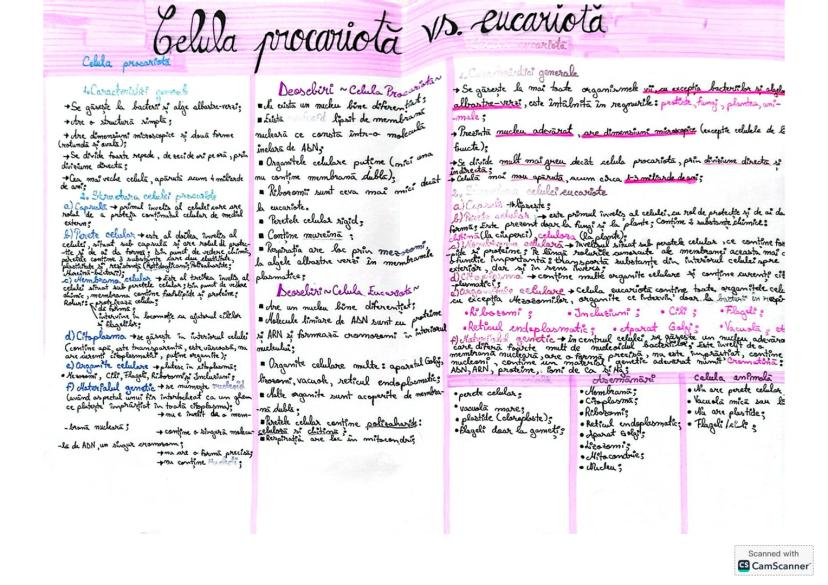 Celula procariotă vs. eucariotă
Celula procariotă
1. Caracteristici generale
→ Se găsește la bacterii și alge albastre-verzi;
→ Are o structură simplă;
→ Are dimensiuni microscopice și două forme
(rotundă și ovală);
→ Se divide foarte repede, de zeci de ori pe oră, prin
diviziune directă;
→ Cea mai veche celulă, apărută acum 4 miliarde
de ani;
2. Structura celulei procariote
a) Capsulă → primul înveliș al celulei care are
rolul de a proteja conținutul celular de mediul
extern;
b) Perete celular → este al doilea înveliș al
celulei, situat sub capsulă și are rolul de protec-
ție și de a da formă; din punct de vedere chimic,
peretele conține 3 substanțe care dau elasticitate,
c) Membrana celulară → este al treilea înveliș al
celulei situat sub peretele celular; din punct de vedere
chimic, membrana conține fosfolipide și proteine;
Roluri: → protejează celula;
→ dă formă;
→ intervine în locomoție cu ajutorul cililor
și flagelilor;
d) Citoplasma → se găsește în interiorul celulei
Conține apă, este transparentă, este vâscoasă, nu
are curenți citoplasmatici, puține organite;
e) Organite celulare → plutesc în citoplasmă;
Mezozomi, Cili, Flageli, Ribozomi și Incluziuni;
f) Materialul genetic → se numește nucleoid
(având aspectul unui fir întrebuclat ca un ghem
ce plutește împrăștiat în toată citoplasma);
→ nu e învelit de o mem-
brană nucleară;
→ conține o singură molecu-
lă de ADN, un singur cromozom;
→ nu are o formă precisă;
→ nu conține nucleoli;
Deosebiri ~ Celula Procariotă ~
▪ Nu există un nucleu bine diferențiat;
▪ Există nucleoid lipsit de membrană
nucleară ce constă într-o moleculă
inelară de ADN;
▪ Organitele celulare puține (nici una
nu conține membrană dublă);
▪ Ribozomii sunt ceva mai mici decât
la eucariote.
▪ Peretele celular rigid;
▪ Conține mureină;
▪ Respirația are loc prin mezozomi,
la algele albastre verzi în membranele
plasmatice;
Deosebiri ~ Celula Eucariotă ~
▪ Are un nucleu bine diferențiat;
▪ Molecule liniare de ADN sunt cu proteine
și ARN și formează cromozomi în interiorul
nucleului;
▪ Organite celulare multe: aparatul Golgi,
lizozomi, vacuole, reticul endoplasmatic;
▪ Multe organite sunt acoperite de membra-
nă dublă;
▪ Peretele celular conține polizaharide:
celuloză și chitină;
▪ Respirația are loc în mitocondrii;
1. Caracteristici generale
→ Se găsește la mai toate organismele vii cu excepția bacteriilor și algelor
albastre-verzi, este întâlnită în regnurile: protiste, fungi, plante, ani-
male;
→ Prezintă nucleu adevărat, are dimensiuni microscopice (excepție celulele de la
fructe);
→ Se divide mult mai greu decât celula procariotă, prin diviziune directă și
indirectă;
→ Celula mai nou apărută, acum circa 1-3 miliarde de ani;
2. Structura celulei eucariote
a) Capsula → lipsește;
b) Perete celular → este primul înveliș al celulei, cu rol de protecție și de a da
formă; Este prezent doar la fungi și la plante; Conține 2 substanțe chimice:
chitină (la ciuperci), celuloza (la plante);
c) Membrana celulară → învelișul situat sub peretele celular, ce conține
d) Citoplasma → conține multe organite celulare și conține curenți
e) Organite celulare → celula eucariotă conține toate organitele
cu excepția Mezozomilor, organite ce intervin doar la bacterii în
• Ribozomi • Incluziuni • Cili • Flageli
• Reticul endoplasmatic • Aparat Golgi • Vacuola
f) Materialul genetic → în centrul celulei se găsește un nucleu adevărat
care diferă foarte mult de nucleoidul bacteriilor; Este învelit de
membrană nucleară, are o formă precisă, nu este împrăștiat, conține
nucleoli, conține un material genetic adevărat numit Cromatină:
ADN, ARN, proteine, ioni de Ca și Na;
• perete celular;
• vacuolă mare;
• plastide (cloroplaste);
• Flageli doar la gameți;
Asemănări
• Membrană;
• Citoplasmă;
• Ribozomi;
• Reticul endoplasmatic;
• Aparat Golgi;
• Lizozomi;
• Mitocondrie;
• Nucleu;
Celula animală
• Nu are perete celular
• Vacuolă mică sau
• Nu are plastide;
• Flageli/cili;
Scanned with
CS CamScanner